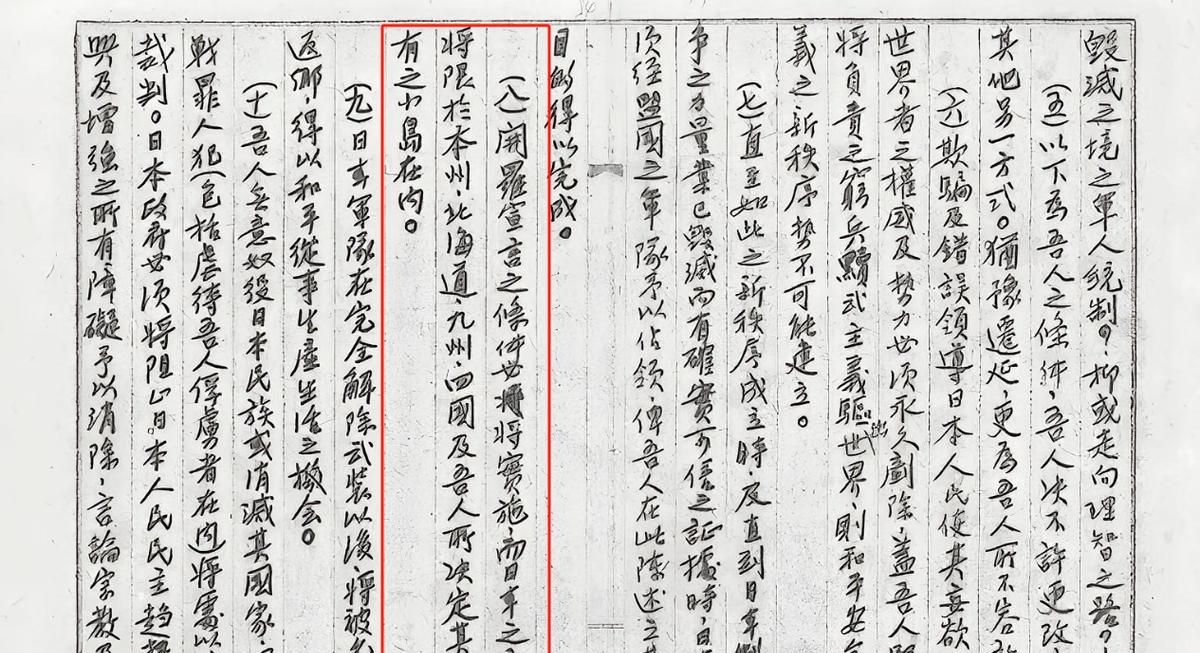 毀滅之境之軍人統制，抑或走向理智之路，
（五）以下為吾人之條件，吾人決不許更改，
其他另一方式。猶豫遷延，更為吾人所不容許
（六）欺騙及錯誤領導日本人民使其妄欲
世界者之權威及勢力必須永久剷除蓋吾人堅
將負責之窮兵黷武主義驅出世界，則和平安全
義之新秩序勢不可能建立。
（七）直至如此之新秩序成立時，及直到日本制
爭之力量業已毀滅而有確實可信之証據時，日
須經盟國之軍隊予以佔領，俾吾人在此陳述之基
目的得以完成。
（八）開羅宣言之條件必將將實施，而日本之
將限於本州，北海道，九州，四國及吾人所決定其
有之小島在內。
（九）日本軍隊在完全解除武裝以後，將被允
返鄉，得以和平從事生產生活之機會。
（十）吾人無意奴役日本民族或消滅其國家，
戰罪人犯（包括虐待吾人俘虜者在內）將處以
裁判。日本政府必須將阻止日本人民民主趨勢
興及增強之所有障礙予以消除，言論宗教及